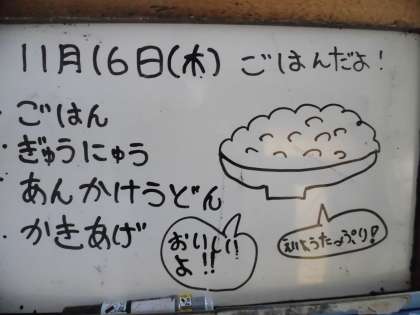 11月16日(木) ごはんだよ!
・ごはん
・ぎゅうにゅう
・あんかけうどん
・かきあげ
おいしい
よ!!
えいようたっぷり!